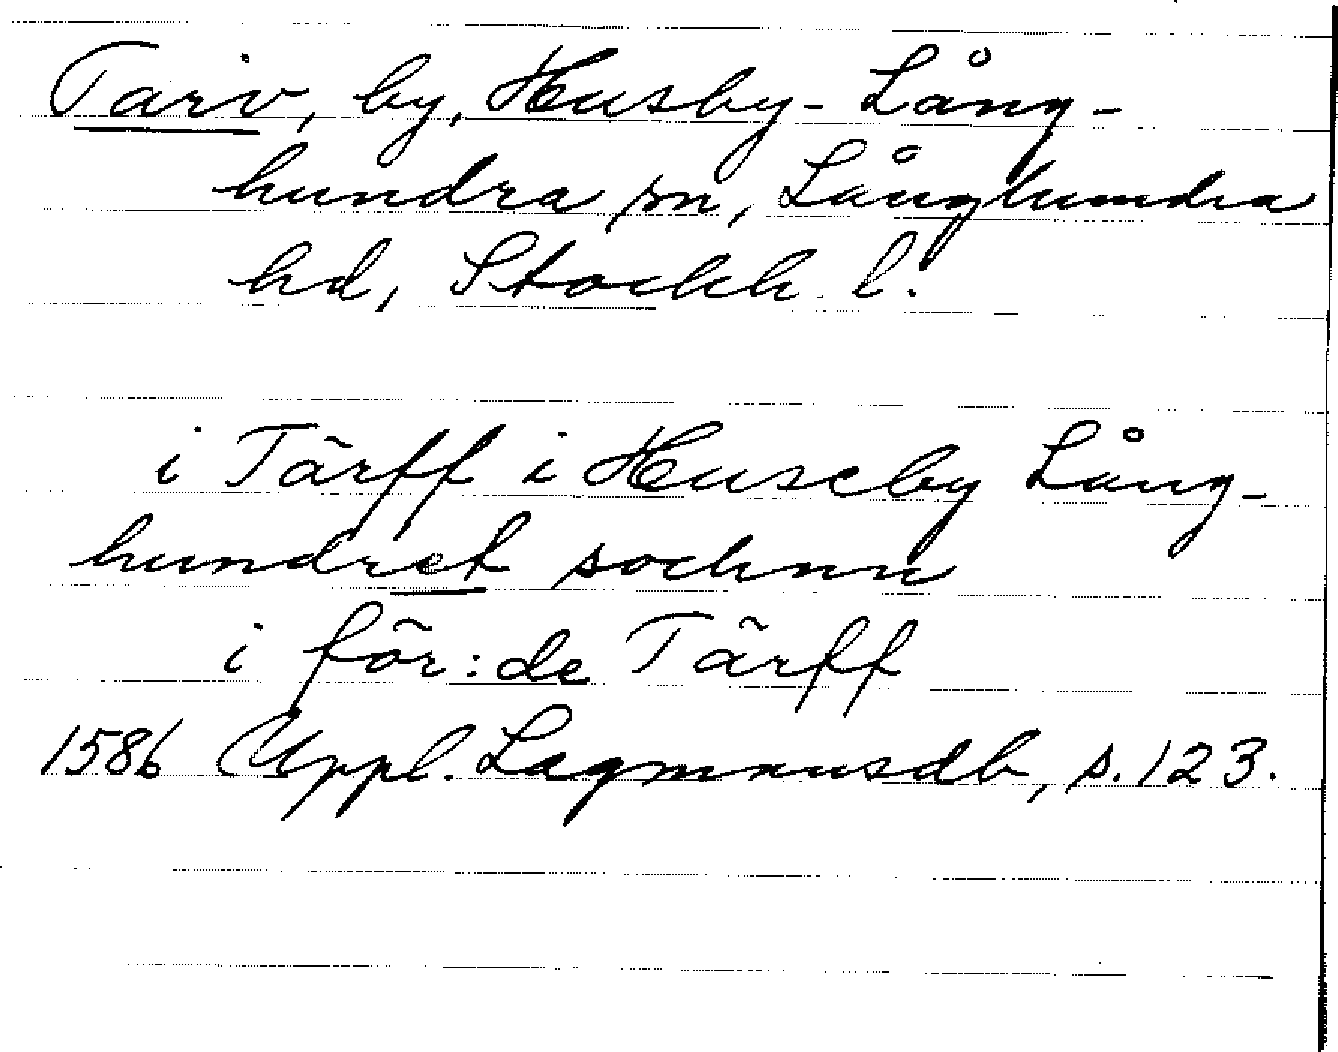 Tarv, by, Husby-Lång-
hundra sn, Långhundra
hd, Stockh. l.
i Tärff i Huseby Lång-
hundret sochnn
i för:de Tärff
1586 Uppl. Lagmansdb, s. 123.